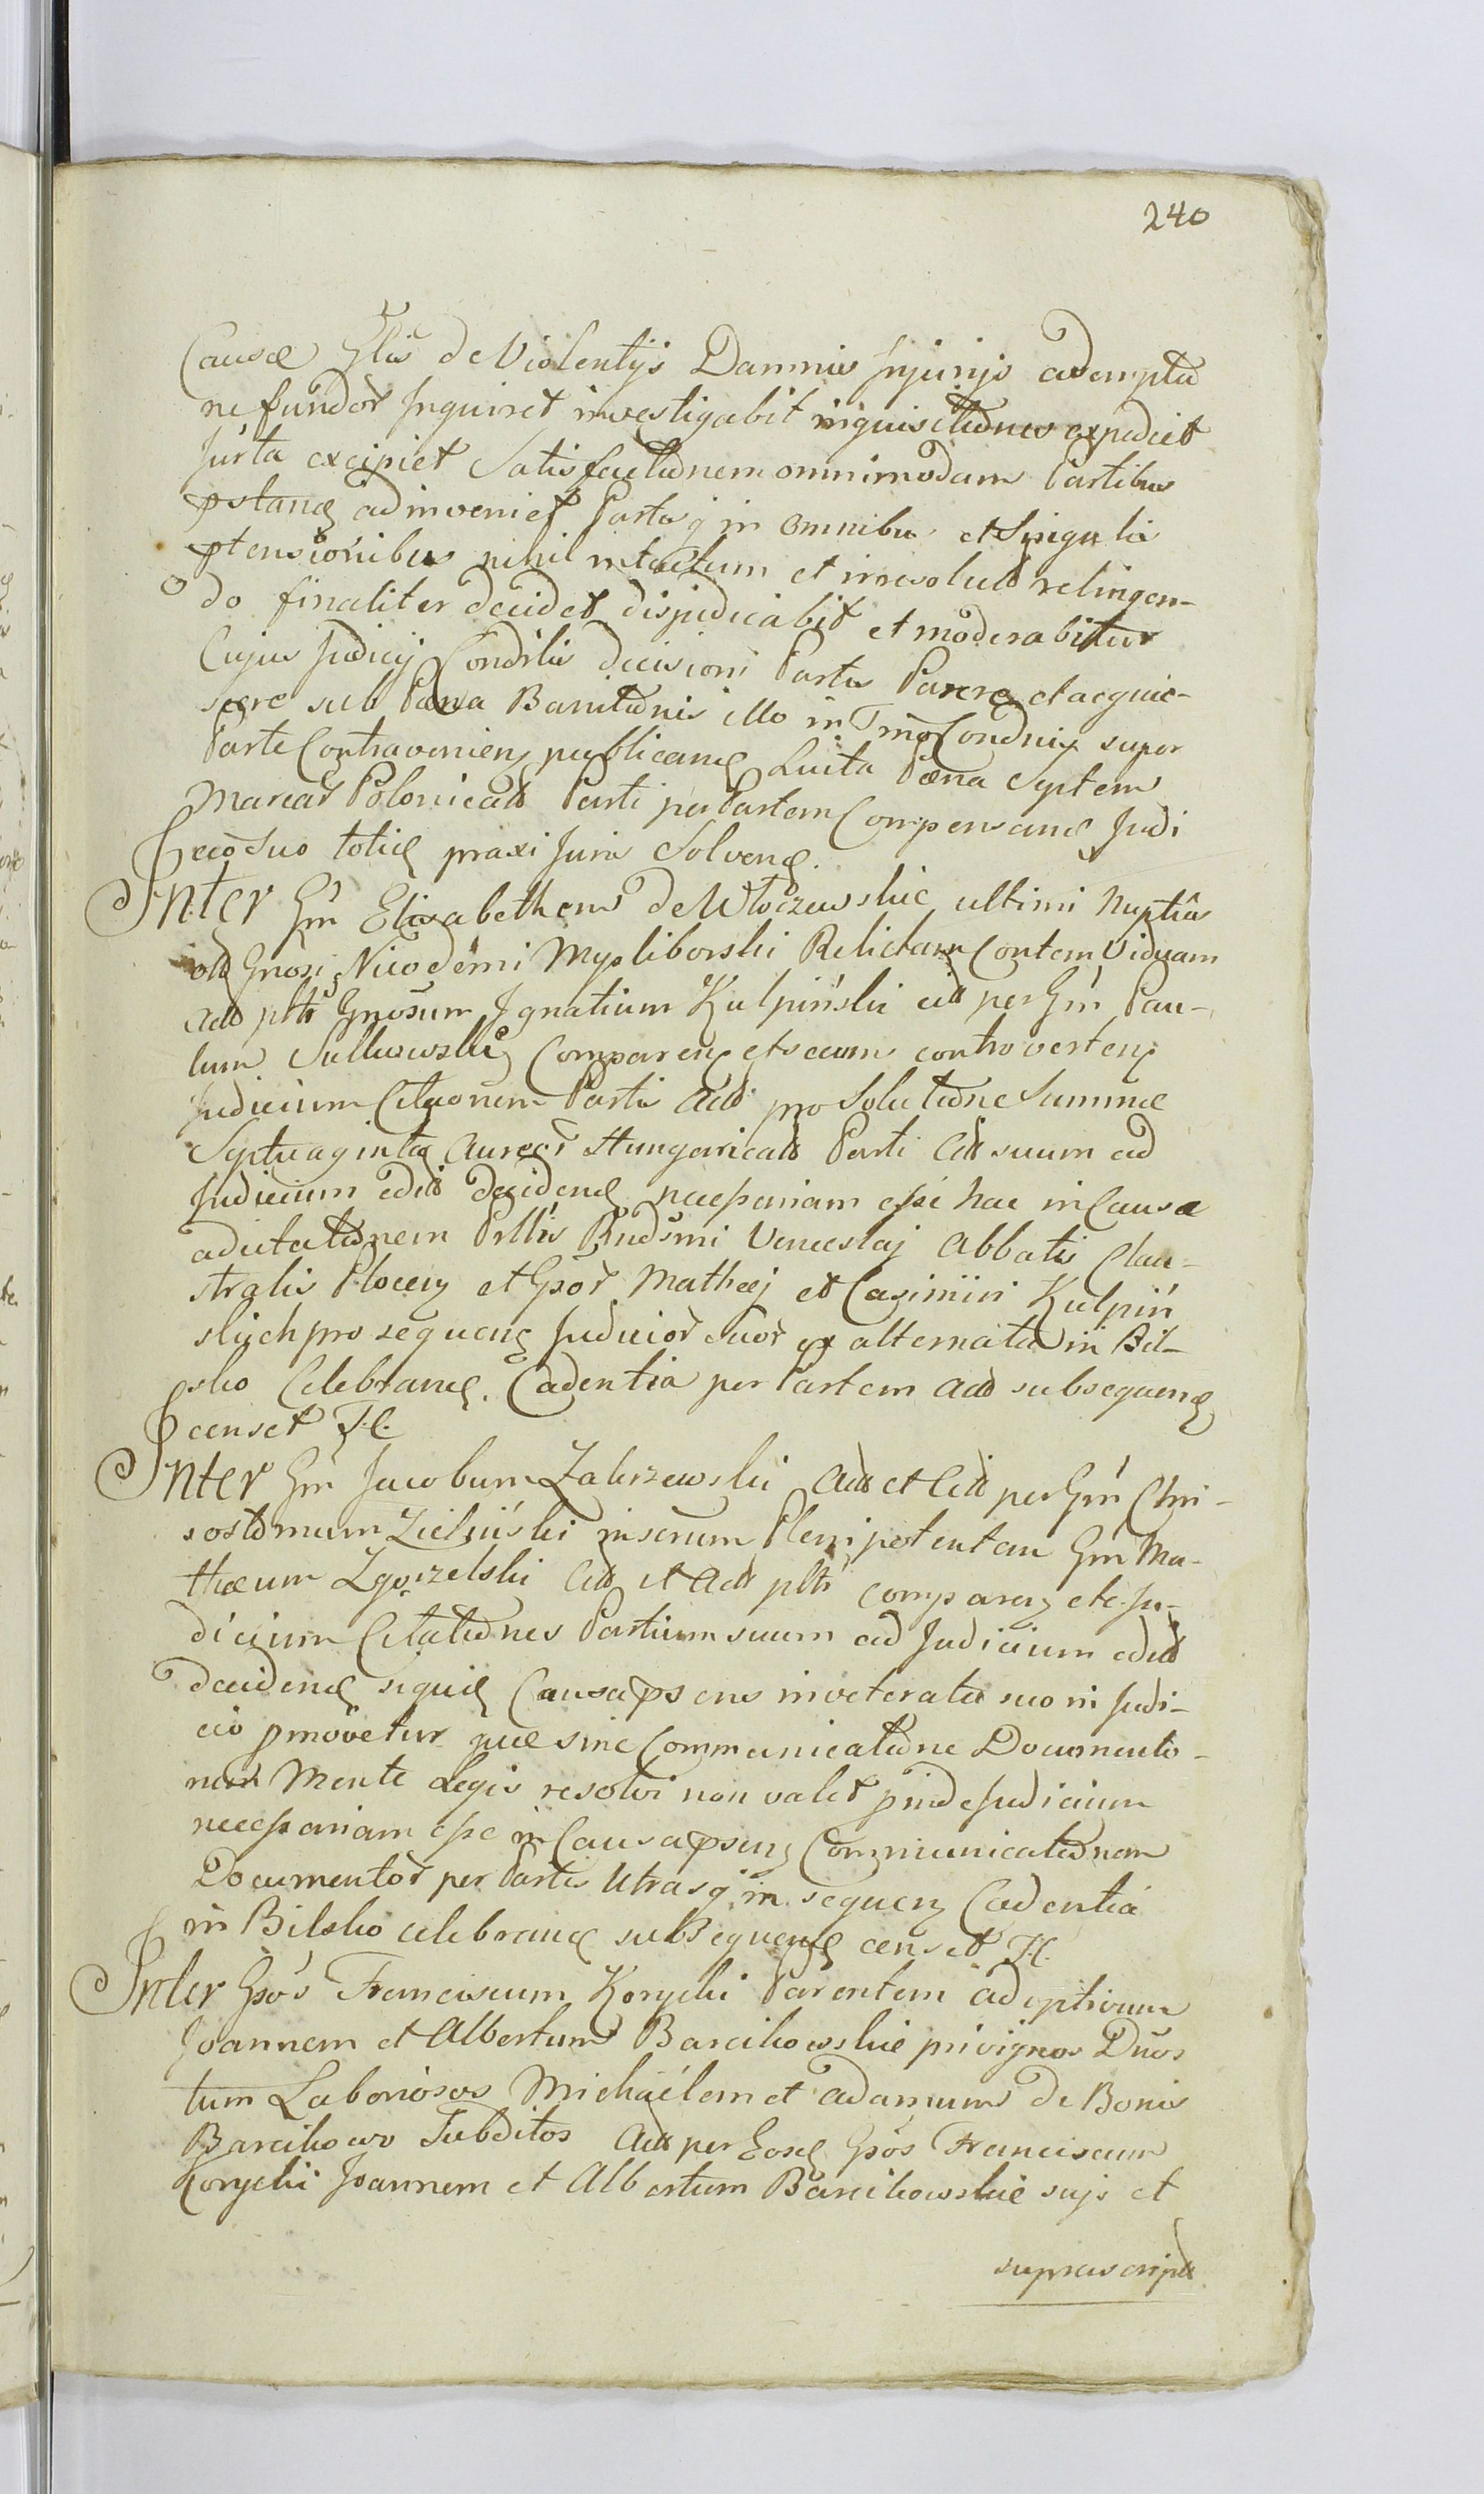 240
Causæ Glis de Violentijs Damnis Injurijs adempta
ne fundor Inquiret investigabit inquisitiones expediet
Jurta excipiet Satisfactionem omnimodam Partibus
pstang adinveniet Partesq in omnibus et Singulis
ptensionibus nihil intactum et irresolut relinqen-
do finaliter decidet disjudicabit et moderabitur
Cujus Judicij Condlis decisioni Partes Parere et acquie-
scere sub Pæna Banitionis illo in Tmo Condnis super
Parte Contravenien publicand Luita Pæna Septem
Marcar Polonicad Parti per Partem Compensand Judi
cio Suo toties praxi Juris Solvend.
Inter Gm Elisabetham de Włoczewskie ultimi Nuptus
olo Gnosi Nicodemi Mysliborski Relictam Contem Viduam
Act pltr Gnosum Ignatium Kulpiński cit per Gm Pau-
lum Sulkowski Comparen et secum controverten
Judicium Citaonem Partis Act pro Solutione Summæ
Septuaginta Aureor Hungaricalt Parti Cit suum ad
Judicium edit decidend necessariam esse hac in Causa
adcitationem Prllis Rndsmi Venceslaj Abbatis Clau-
stralis Plocen et Gsor Mathæj et Casimiri Kulpiń
skich pro sequend Judicior suor ex alternata in Biel-
sko Celebrand. Cadentia per Partem Act subsequend
censet J.C.
Inter Gm Jacobum Zakrzewski Act et Cit per Gm Chri-
sostomum Zieliński in serum Plenipotentem Gm Ma-
thæum Zgorzelski Cit et Act pltr comparen etc. Ju-
dicium Citationes Partium suum ad Judicium edit
decidend siquid Causa psens inveterata suo in Judi-
cio pmovetur quæ sine Communicatione Documento-
rum Mente Legis resolvi non valet pinde Judicium
necessariam esse in Causa psen Communicationem
Documentor per Partes Utrasq in sequen Cadentia
in Bilsko celebrand subsequend censet J.C.
Inter Gsos Franciscum Korycki Parentem adoptivum
Joannem et Albertum Barcikowskie privignos Duos
tum Laboriosos Michaëlem et Adamum de Bonis
Barcikowo Subditos Act per Eosd Gsos Franciscum
Korycki Joannem et Albertum Barcikowskie suis et
suprascript